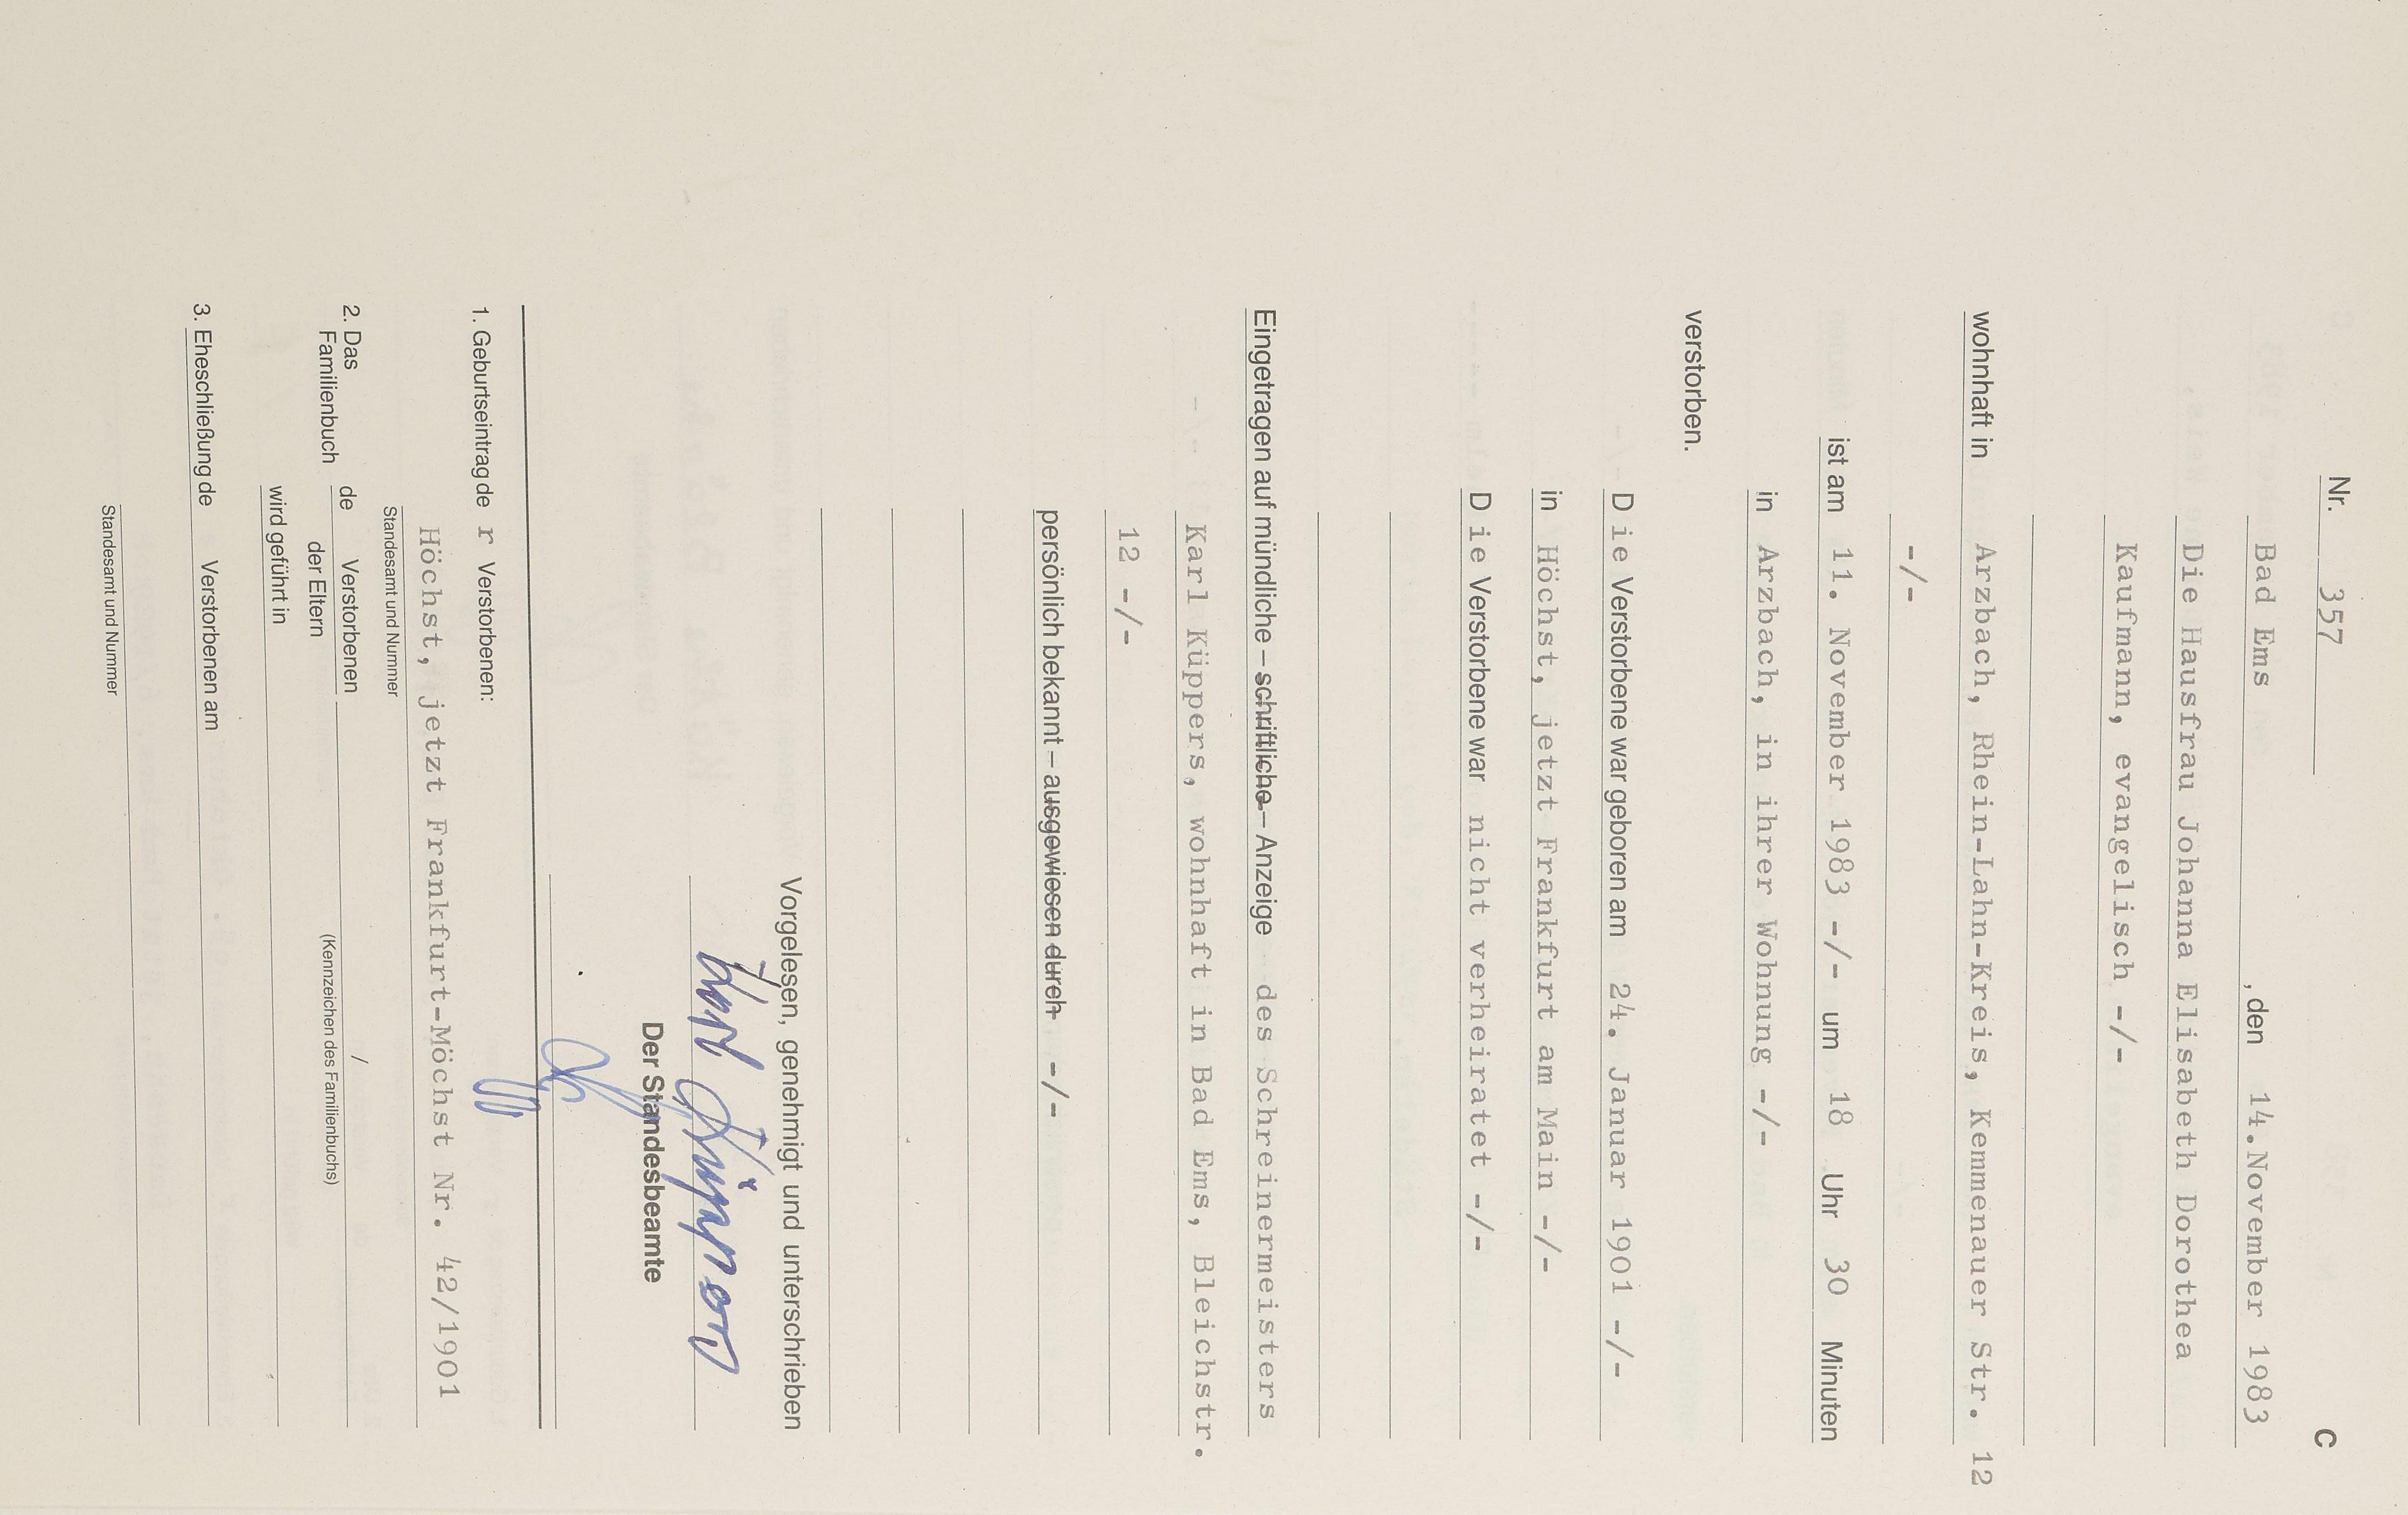 C
Nr. 357
Bad Ems , den 14.November 1983
Die Hausfrau Johanna Elisabeth Dorothea
Kaufmann, evangelisch -/-
wohnhaft in Arzbach, Rhein-Lahn-Kreis, Kemmenauer Str. 12
-/-
ist am 11. November 1983 -/- um 18 Uhr 30 Minuten
in Arzbach, in ihrer Wohnung -/-
verstorben.
D ie Verstorbene war geboren am 24. Januar 1901 -/-
in Höchst, jetzt Frankfurt am Main -/-
D ie Verstorbene war nicht verheiratet -/-
Eingetragen auf mündliche – schriftliche – Anzeige des Schreinermeisters
Karl Küppers, wohnhaft in Bad Ems, Bleichstr.
12 -/-
persönlich bekannt – ausgewiesen durch -/-
Vorgelesen, genehmigt und unterschrieben
Karl Küppers
Der Standesbeamte
1. Geburtseintrag de r Verstorbenen:
Höchst, jetzt Frankfurt-Möchst Nr. 42/1901
Standesamt und Nummer
2. Das Familienbuch de Verstorbenen /
der Eltern (Kennzeichen des Familienbuchs)
wird geführt in
3. Eheschließung de Verstorbenen am
Standesamt und Nummer